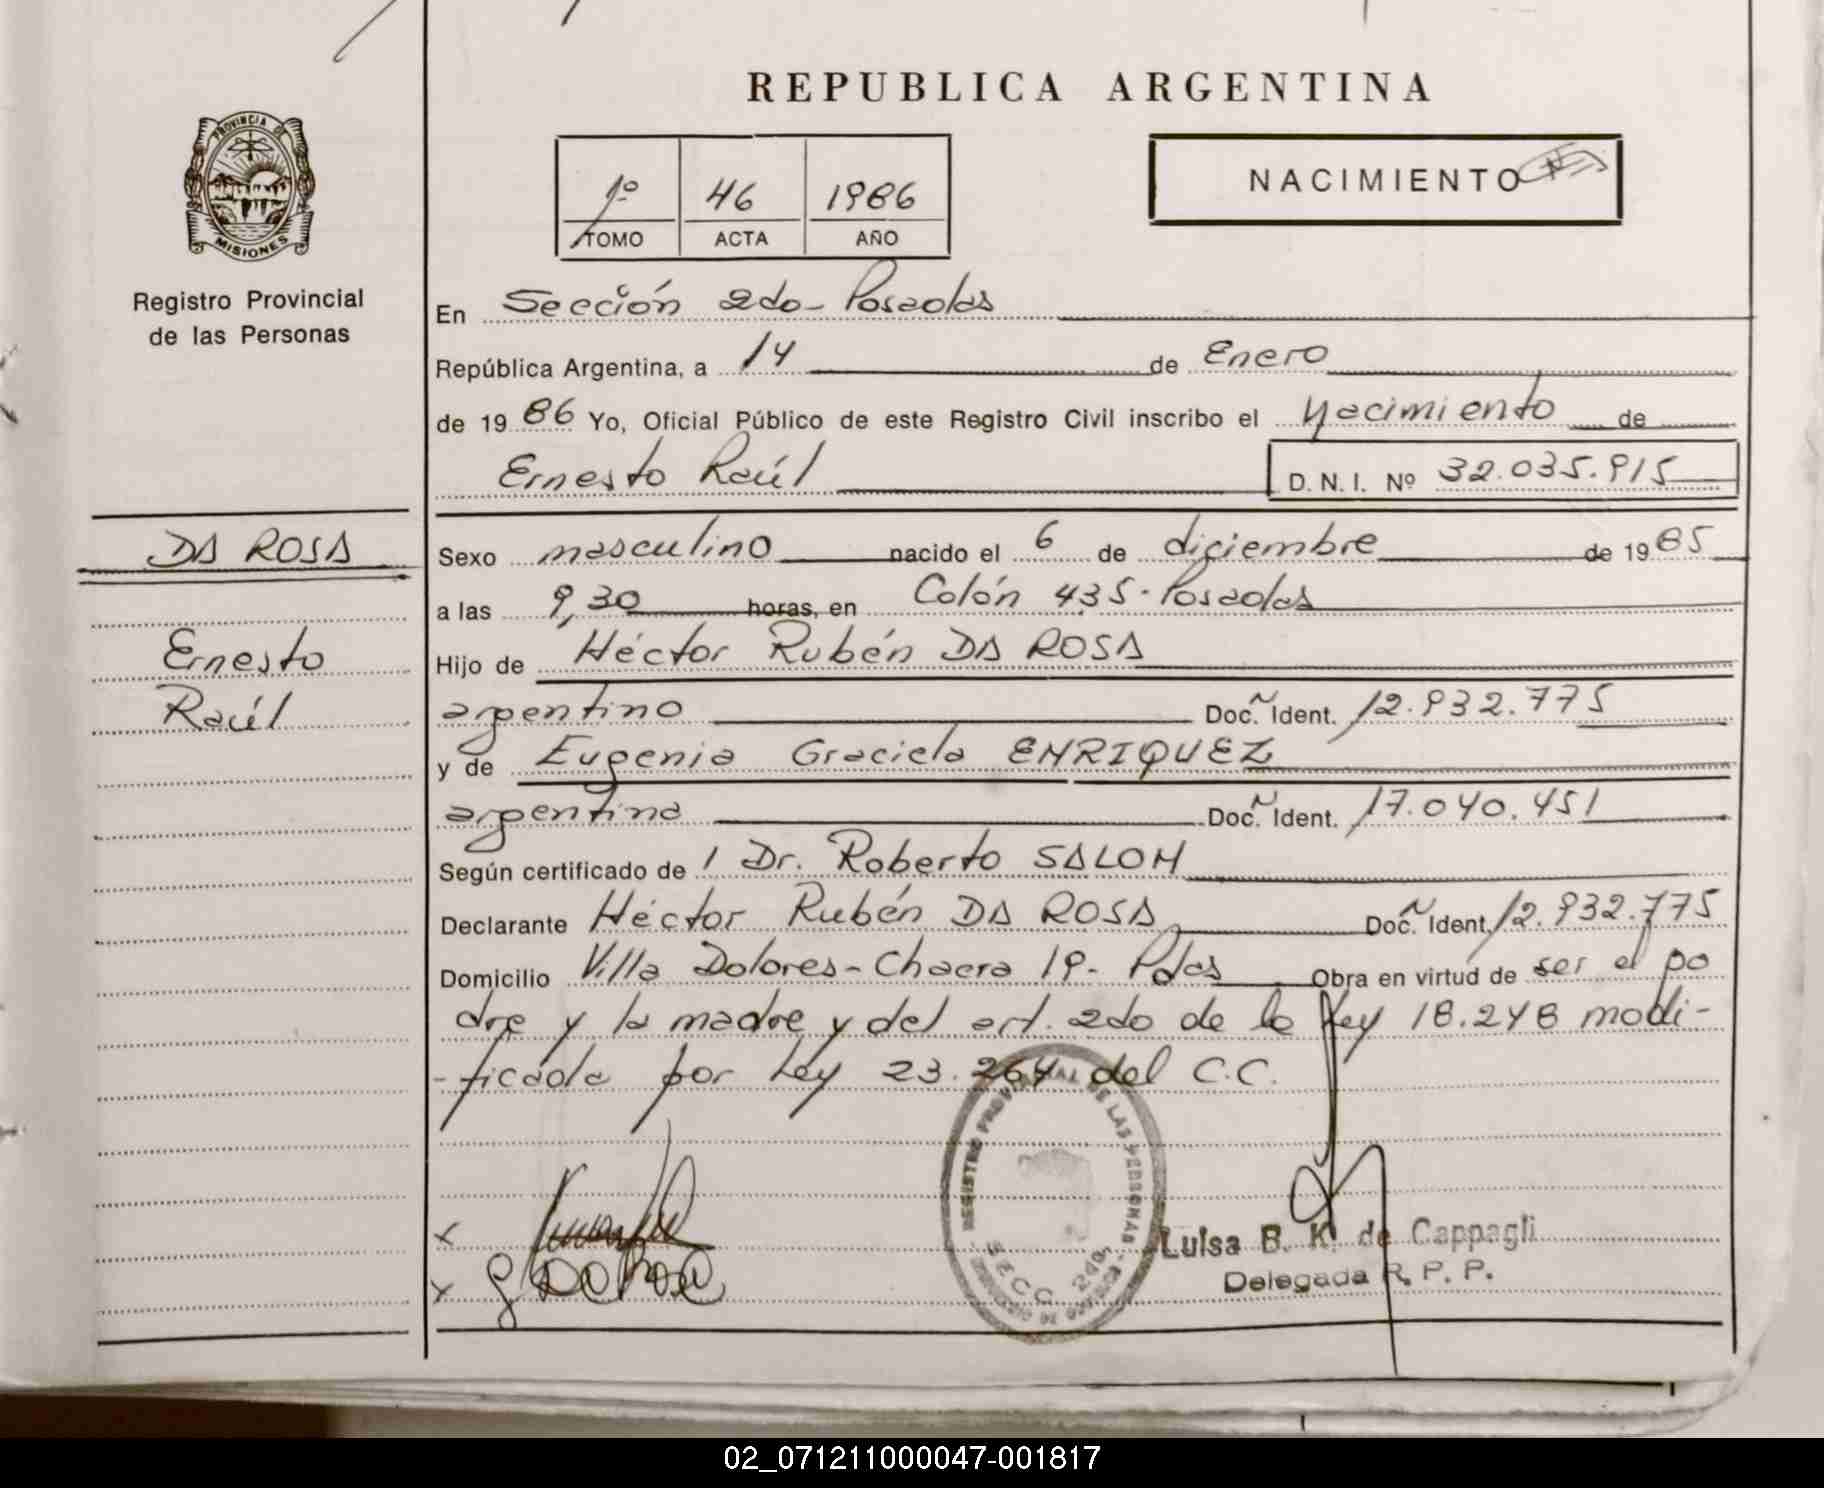 REPUBLICA ARGENTINA
PROVINCIA DE
MISIONES
Registro Provincial
de las Personas
1º 46 1986
TOMO ACTA AÑO
NACIMIENTO
En Sección 2do - Posadas
República Argentina, a 14 de Enero
de 1986 Yo, Oficial Público de este Registro Civil inscribo el Nacimiento de
Ernesto Raúl D. N. I. Nº 32.035.915
DA ROSA
Ernesto
Raúl
Sexo masculino nacido el 6 de diciembre de 1985
a las 9,30 horas, en Colón 435 - Posadas
Hijo de Héctor Rubén DA ROSA
argentino Doc. Ident. 12.932.775
y de Eugenia Graciela ENRIQUEZ
argentina Doc. Ident. 17.040.451
Según certificado de 1 Dr. Roberto SALOM
Declarante Héctor Rubén DA ROSA Doc. Ident. 12.932.775
Domicilio Villa Dolores - Chacra 19 - Pdas Obra en virtud de ser el pa
dre y la madre y del art. 2do de la Ley 18.248 modi-
-ficada por Ley 23.264 del C.C.
REGISTRO PROVINCIAL DE LAS PERSONAS
SECC 2da
Luisa B. K. de Cappagli
Delegada R. P. P.
02_071211000047-001817